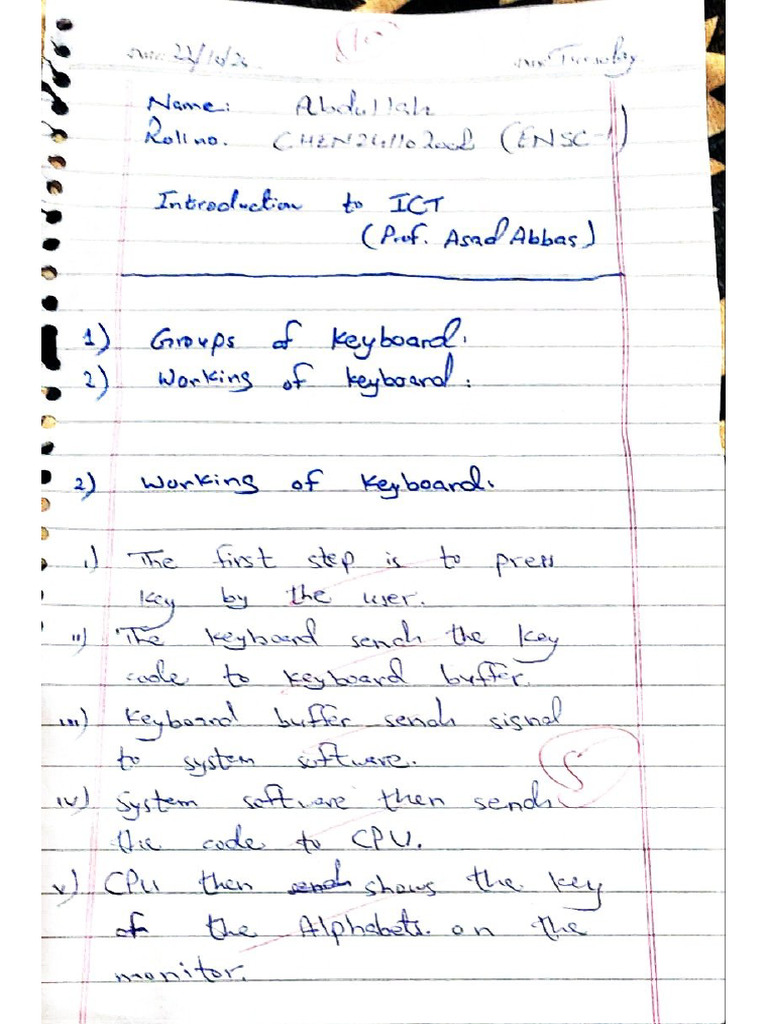 22/10/24 Tuesday
Name: Abdullah
Roll no. CHEN24110 (ENSC-1)
Introduction to ICT
(Prof. Asad Abbas)
1) Groups of keyboard.
2) Working of keyboard:
2) Working of keyboard.
i) The first step is to press
key by the user.
ii) The keyboard sends the key
code to keyboard buffer.
iii) Keyboard buffer sends signal
to system software.
5
iv) System software then sends
the code to CPU.
v) CPU then sends shows the key
of the Alphabets. on the
monitor.